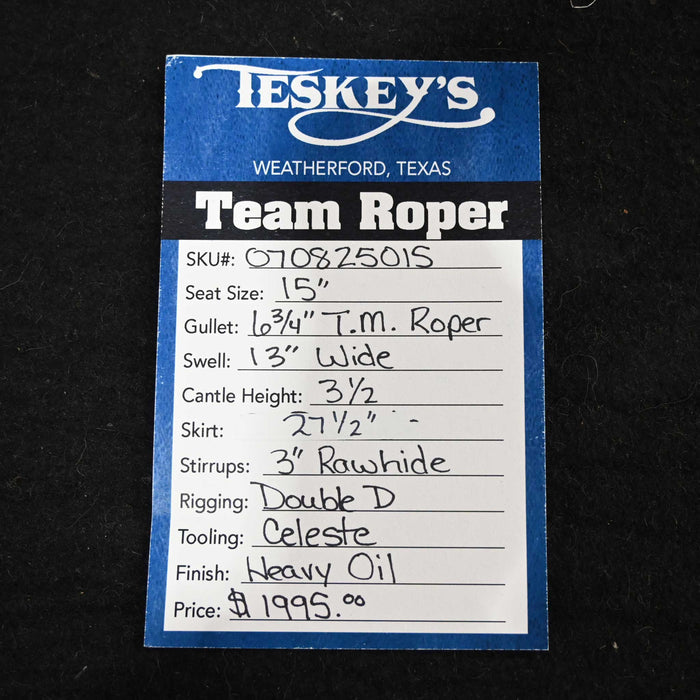 TESKEY'S
WEATHERFORD, TEXAS
Team Roper
SKU#: 070825015
Seat Size: 15"
Gullet: 6 3/4" T.M. Roper
Swell: 13" Wide
Cantle Height: 3 1/2
Skirt: 27 1/2" -
Stirrups: 3" Rawhide
Rigging: Double D
Tooling: Celeste
Finish: Heavy Oil
Price: $1995.00